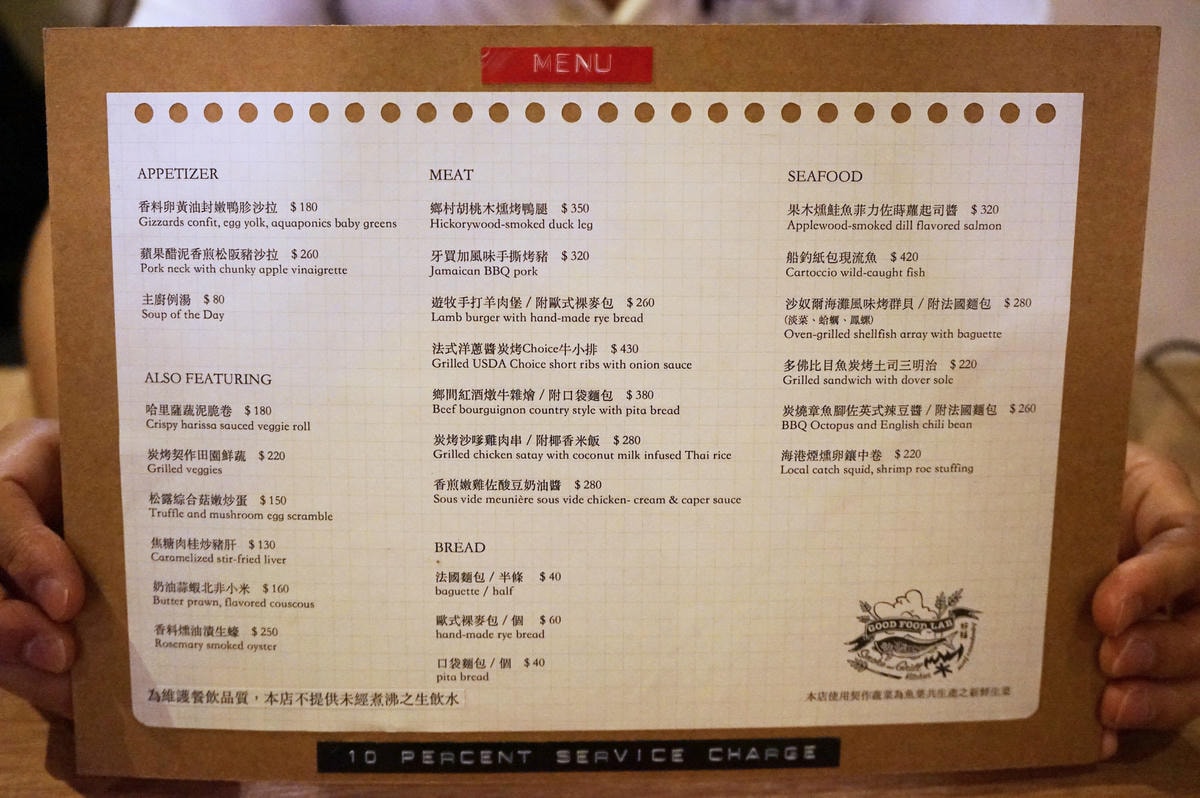 MENU
APPETIZER
香料卵黃油封嫩鴨胗沙拉 $180
Gizzards confit, egg yolk, aquaponics baby greens
蘋果醋泥香煎松阪豬沙拉 $260
Pork neck with chunky apple vinaigrette
主廚例湯 $80
Soup of the Day
ALSO FEATURING
哈里薩蔬泥脆卷 $180
Crispy harissa sauced veggie roll
炭烤契作田園鮮蔬 $220
Grilled veggies
松露綜合菇嫩炒蛋 $150
Truffle and mushroom egg scramble
焦糖肉桂炒豬肝 $130
Caramelized stir-fried liver
奶油蒜蝦北非小米 $160
Butter prawn, flavored couscous
香料燻油漬生蠔 $250
Rosemary smoked oyster
為維護餐飲品質，本店不提供未經煮沸之生飲水
MEAT
鄉村胡桃木燻烤鴨腿 $350
Hickorywood-smoked duck leg
牙買加風味手撕烤豬 $320
Jamaican BBQ pork
遊牧手打羊肉堡 / 附歐式裸麥包 $260
Lamb burger with hand-made rye bread
法式洋蔥醬炭烤Choice牛小排 $430
Grilled USDA Choice short ribs with onion sauce
鄉間紅酒燉牛雜燴 / 附口袋麵包 $380
Beef bourguignon country style with pita bread
炭烤沙嗲雞肉串 / 附椰香米飯 $280
Grilled chicken satay with coconut milk infused Thai rice
香煎嫩雞佐酸豆奶油醬 $280
Sous vide meunière sous vide chicken- cream & caper sauce
BREAD
法國麵包 / 半條 $40
baguette / half
歐式裸麥包 / 個 $60
hand-made rye bread
口袋麵包 / 個 $40
pita bread
SEAFOOD
果木燻鮭魚菲力佐蒔蘿起司醬 $320
Applewood-smoked dill flavored salmon
船釣紙包現流魚 $420
Cartoccio wild-caught fish
沙奴爾海灘風味烤群貝 / 附法國麵包 $280
(淡菜、蛤蠣、鳳螺)
Oven-grilled shellfish array with baguette
多佛比目魚炭烤土司三明治 $220
Grilled sandwich with dover sole
炭燒章魚腳佐英式辣豆醬 / 附法國麵包 $260
BBQ Octopus and English chili bean
海港煙燻卵鑲中卷 $220
Local catch squid, shrimp roe stuffing
GOOD FOOD LAB
Smoke and Grill
Kitchen
本店使用契作蔬菜為魚菜共生產之新鮮生菜
10 PERCENT SERVICE CHARGE